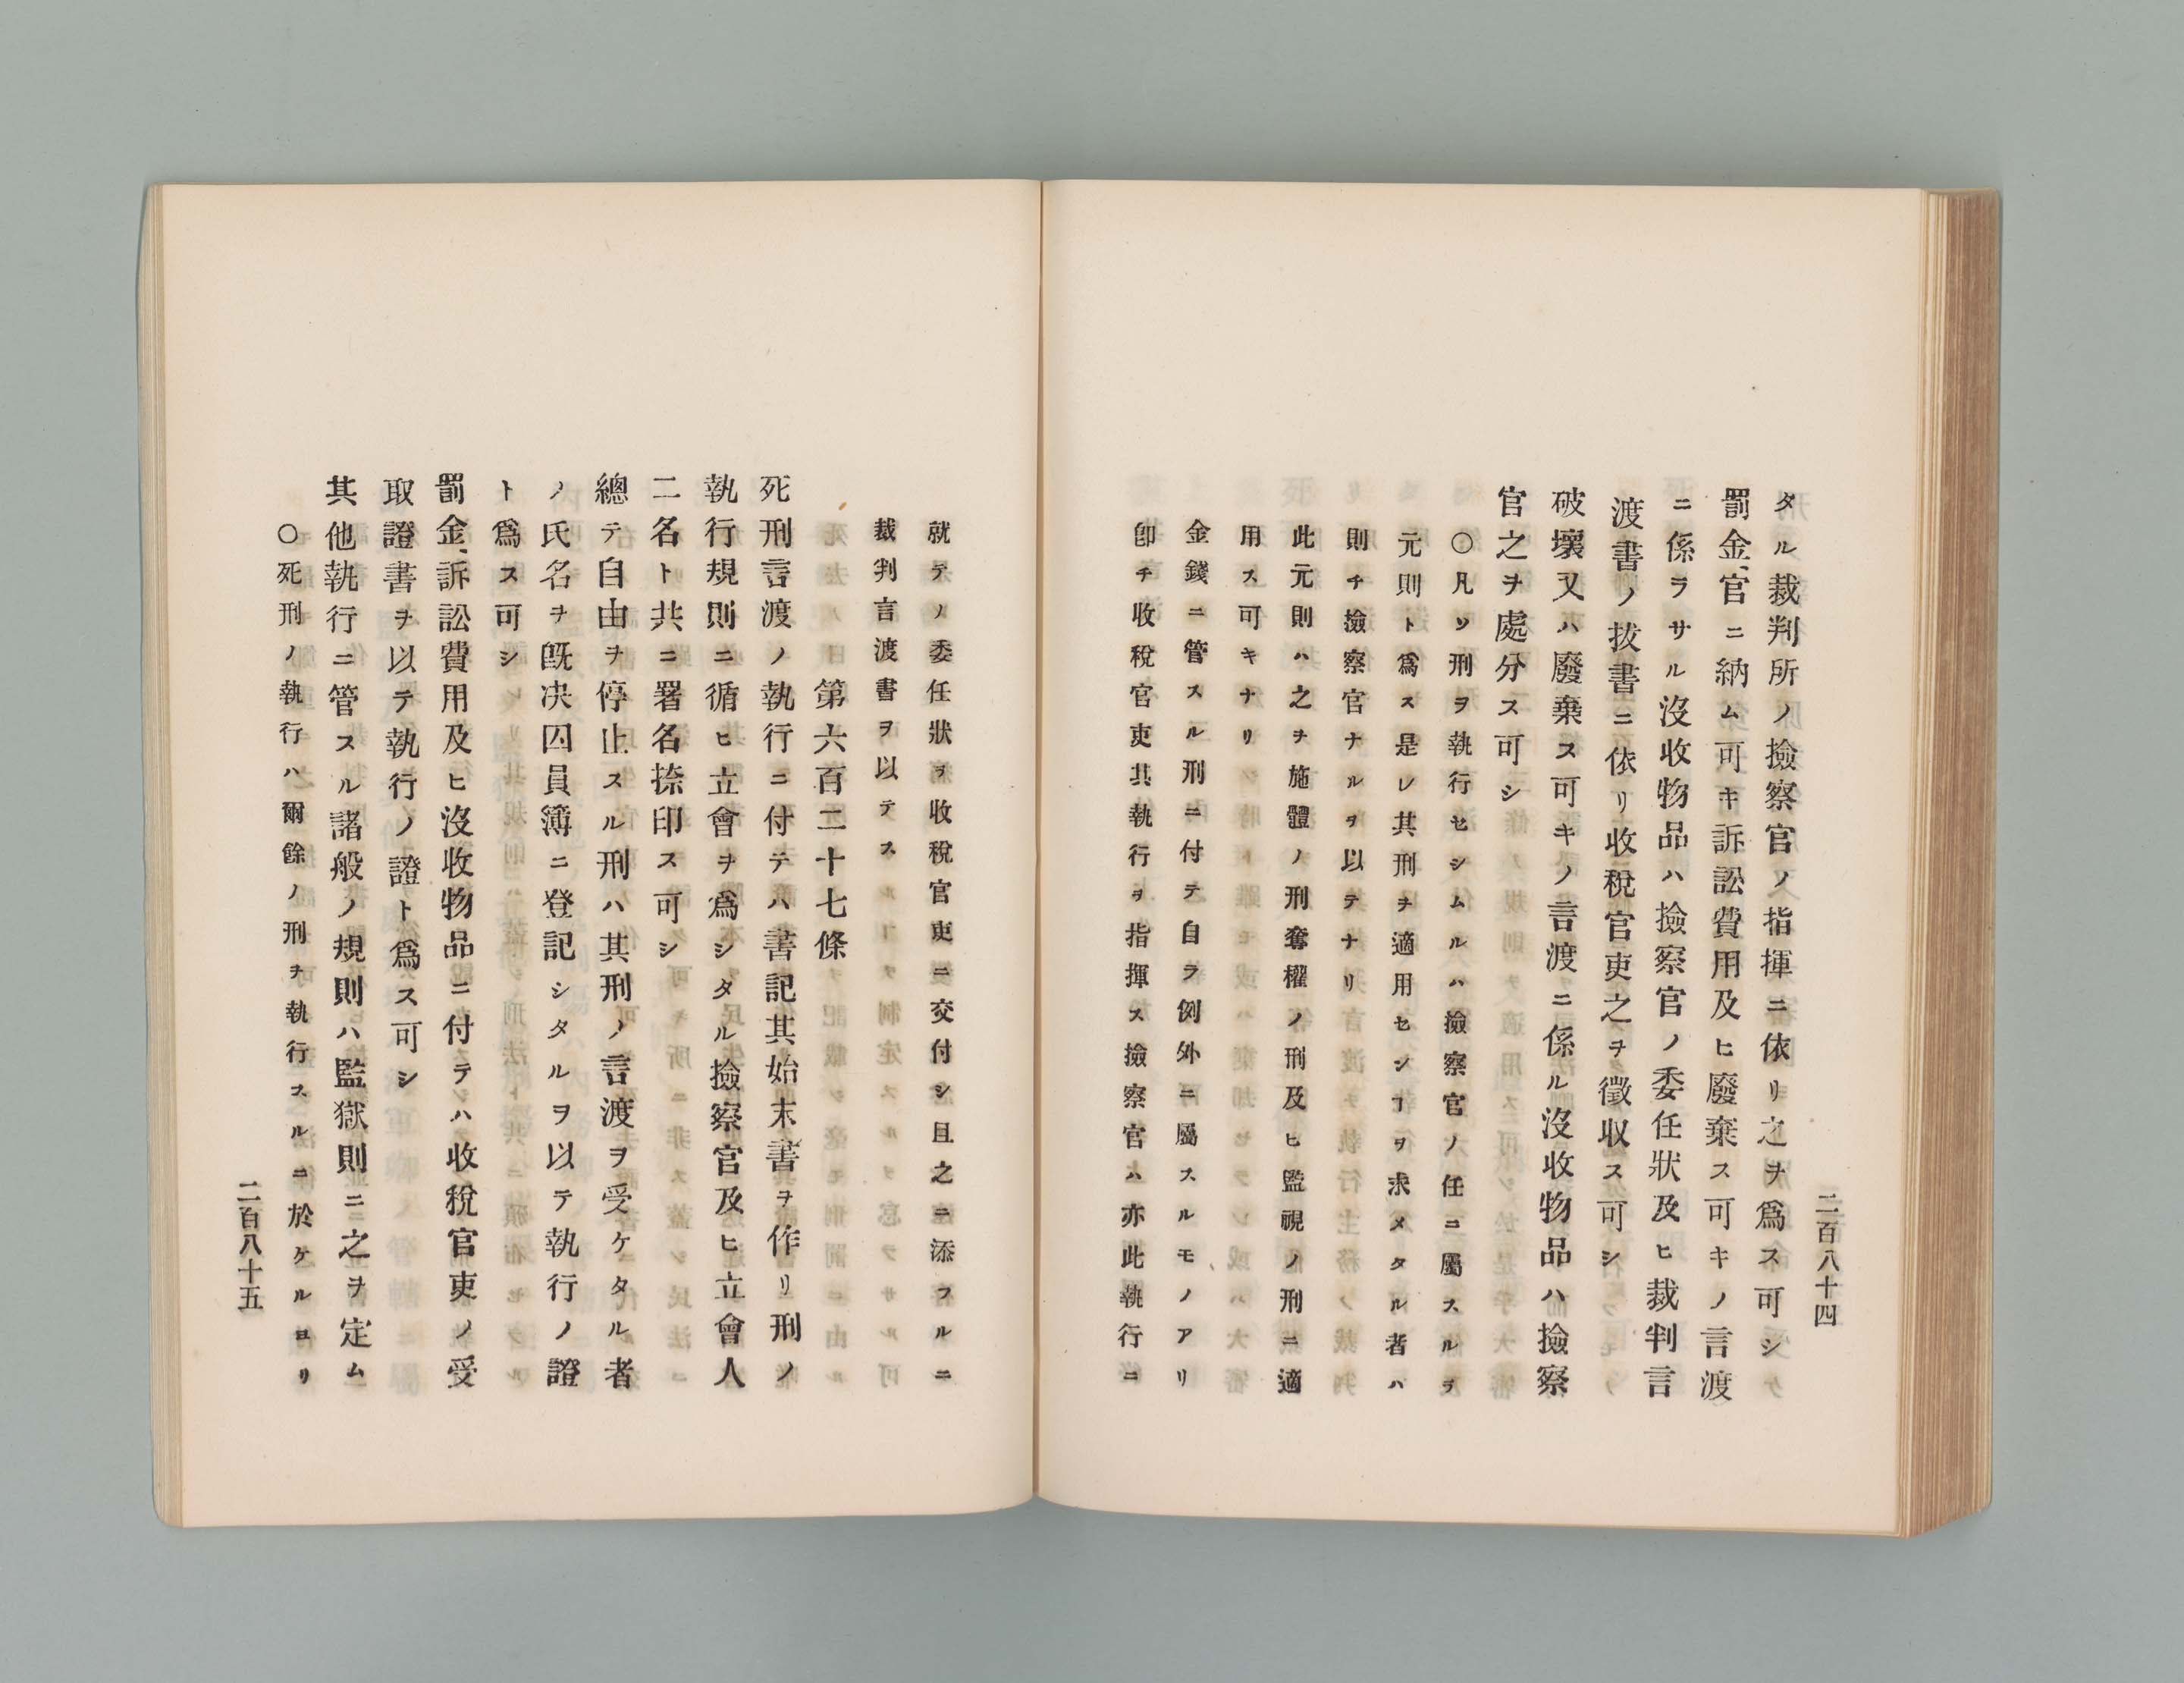 二百八十四
タル裁判所ノ撿察官ノ指揮ニ依リ之ヲ爲ス可シ
罰金、官ニ納ム可キ訴訟費用及ヒ廢棄ス可キノ言渡
ニ係ラサル沒收物品ハ撿察官ノ委任狀及ヒ裁判言
渡書ノ拔書ニ依リ收稅官吏之ヲ徵収ス可シ
破壞又ハ廢棄ス可キノ言渡ニ係ル沒收物品ハ撿察
官之ヲ處分ス可シ
〇凡ソ刑ヲ執行セシムルハ撿察官ノ任ニ屬スルヲ
元則ト爲ス是レ其刑ヲ適用センヿヲ求メタル者ハ
則チ撿察官ナルヲ以テナリ
此元則ハ之ヲ施體ノ刑奪權ノ刑及ヒ監視ノ刑ニ適
用ス可キナリ
金錢ニ管スル刑ニ付テ自ラ例外ニ屬スルモノアリ
卽チ收稅官吏其執行ヲ指揮ス撿察官ハ亦此執行ニ
就テノ委任狀ヲ收稅官吏ニ交付シ且之ニ添フルニ
裁判言渡書ヲ以テスルコ
第六百二十七條
死刑言渡ノ執行ニ付テハ書記其始末書ヲ作リ刑ノ
執行規則ニ循ヒ立會ヲ爲シタル撿察官及ヒ立會人
二名ト共ニ署名捺印ス可シ
總テ自由ヲ停止スル刑ハ其刑ノ言渡ヲ受ケタル者
ノ氏名ヲ旣决囚員簿ニ登記シタルヲ以テ執行ノ證
ト爲ス可シ
罰金、訴訟費用及ヒ沒收物品ニ付テハ收稅官吏ノ受
取證書ヲ以テ執行ノ證ト爲ス可シ
其他執行ニ管スル諸般ノ規則ハ監獄則ニ之ヲ定ム
〇死刑ノ執行ハ爾餘ノ刑ヲ執行スルニ於ケルヨリ
二百八十五